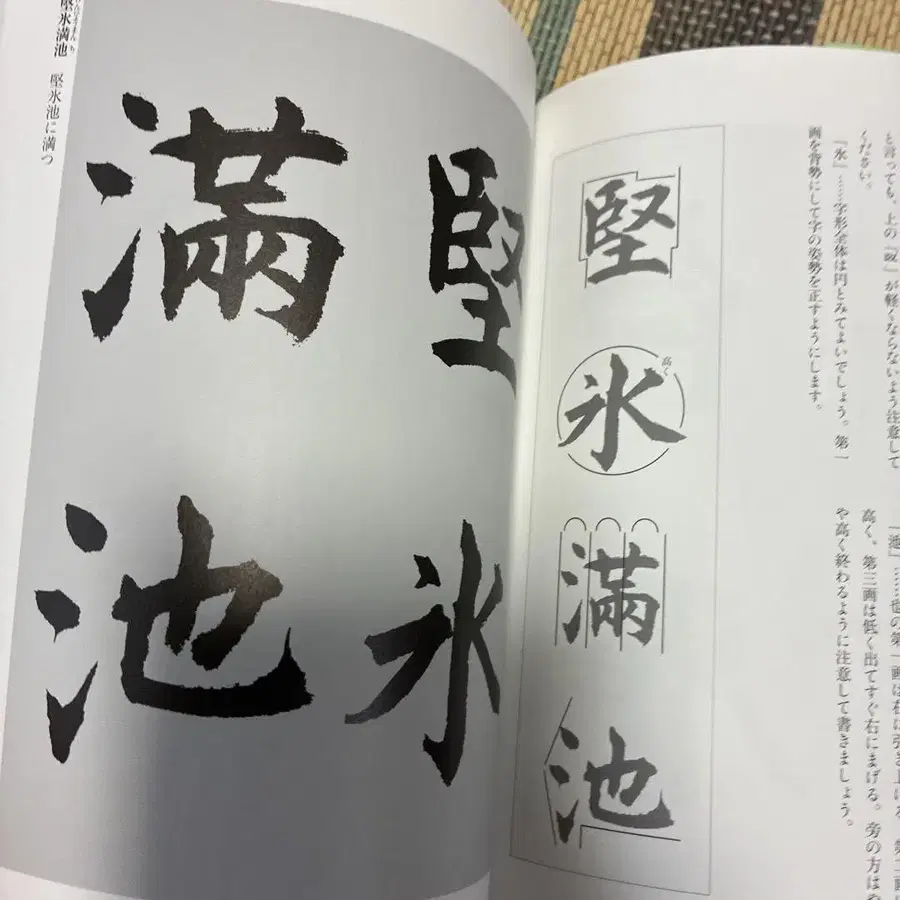 も言っても、上の『臤』が軽くならないよう注意して
ください。
『氷』……字形全体は円とみてよいでしょう。第一
画を背勢にして字の姿勢を正すようにします。
『池』……也の第一画は右に引き上げる。第二画
高く。第三画は低く出てすぐ右にまげる。旁の方はや
や高く終わるように注意して書きましょう。
堅氷滿池
高く
堅氷
滿池
堅氷満池 堅氷池に満つ